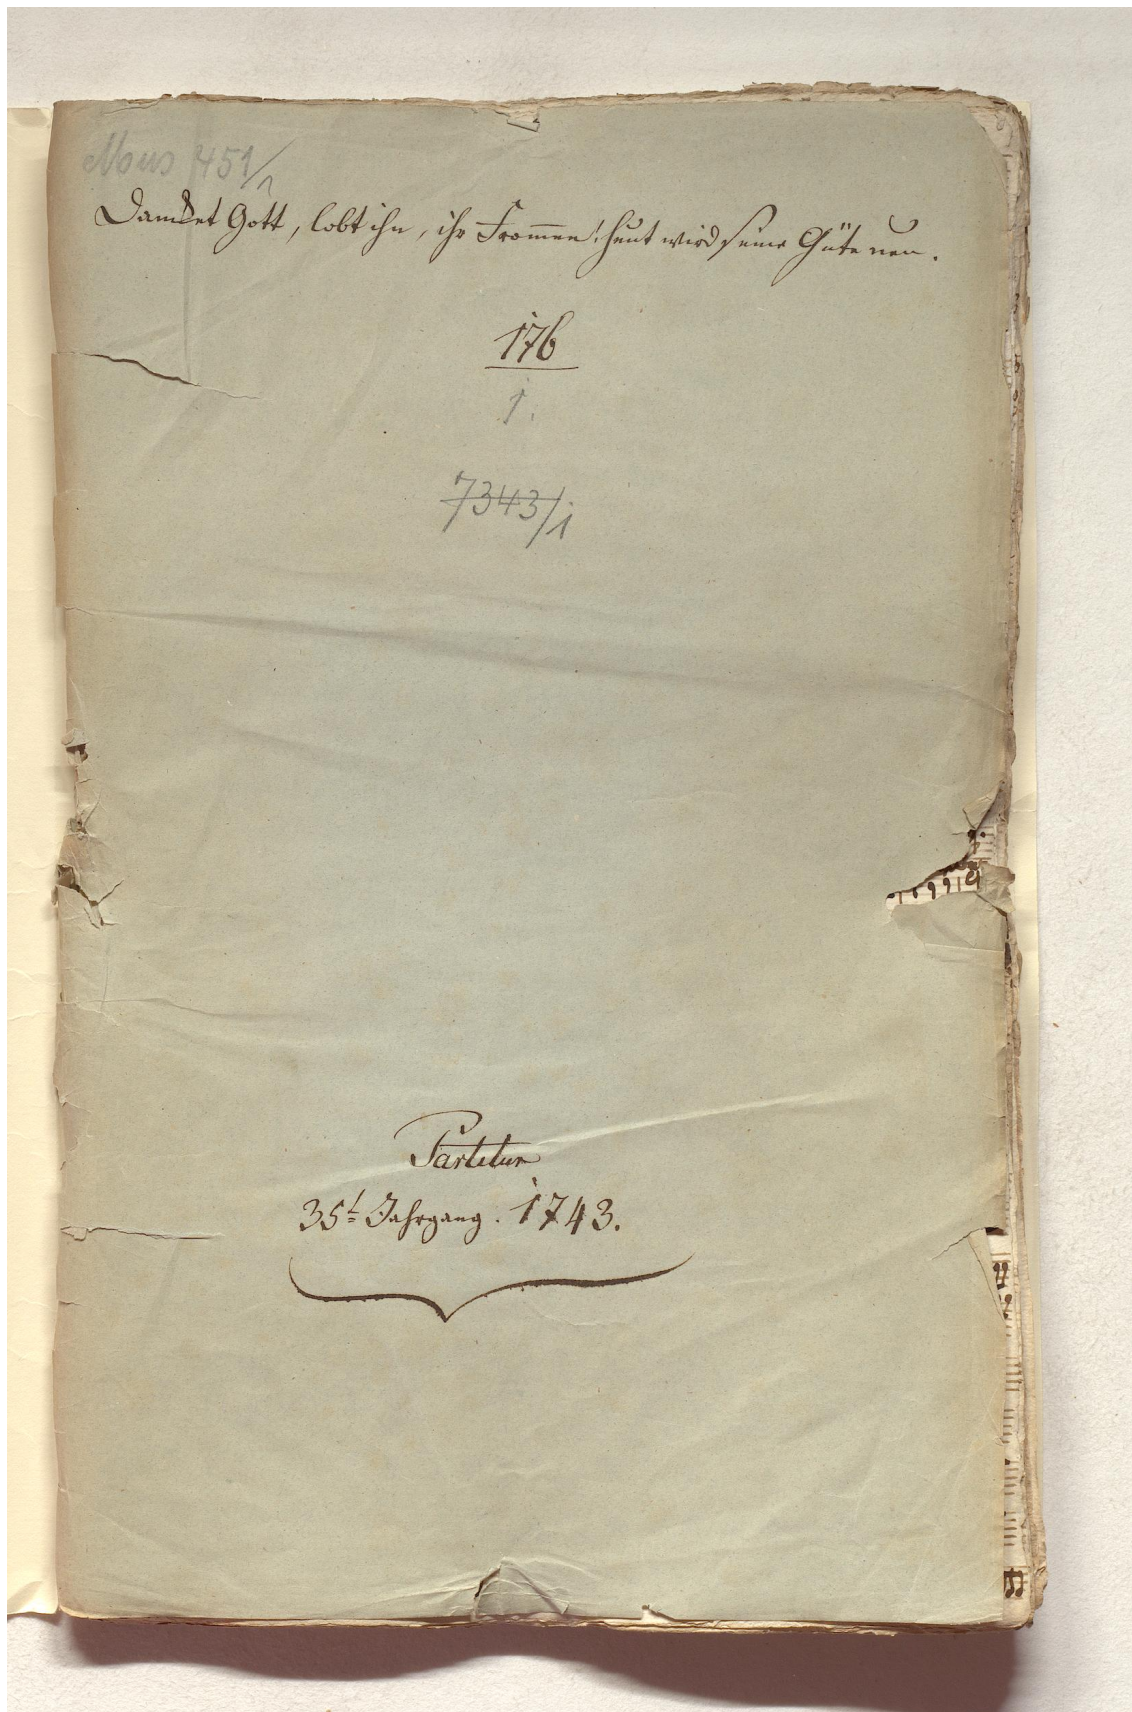 Mus 451/1
Danket Gott, lobt ihn, ihr Frommen! heut wird seine Güte neu.
176
1.
7343/1
Partitur
35t Jahrgang. 1743.